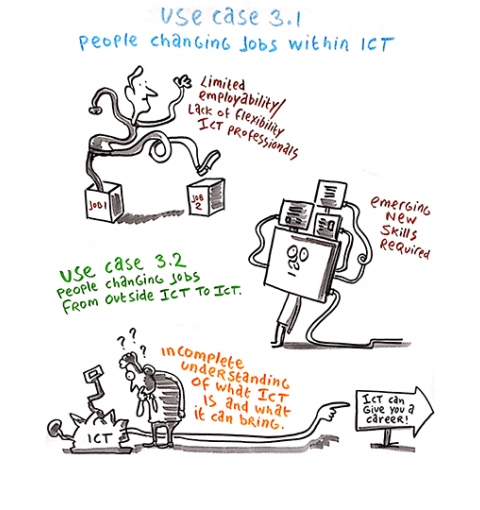 use case 3.1
people changing jobs within ICT
Limited
employability/
Lack of flexibility
ICT professionals
JOB 1
JOB
2
emerging
New
Skills
Required
use case 3.2
people changing jobs
from outside ICT to ICT.
? ? ?
incomplete
understanding
of what ICT
is and what
it can bring.
ICT
ICT can
Give you a
career!